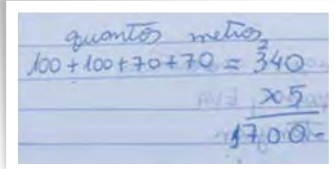 quantos metros
2
100+100+70+70 = 340
x5
1700